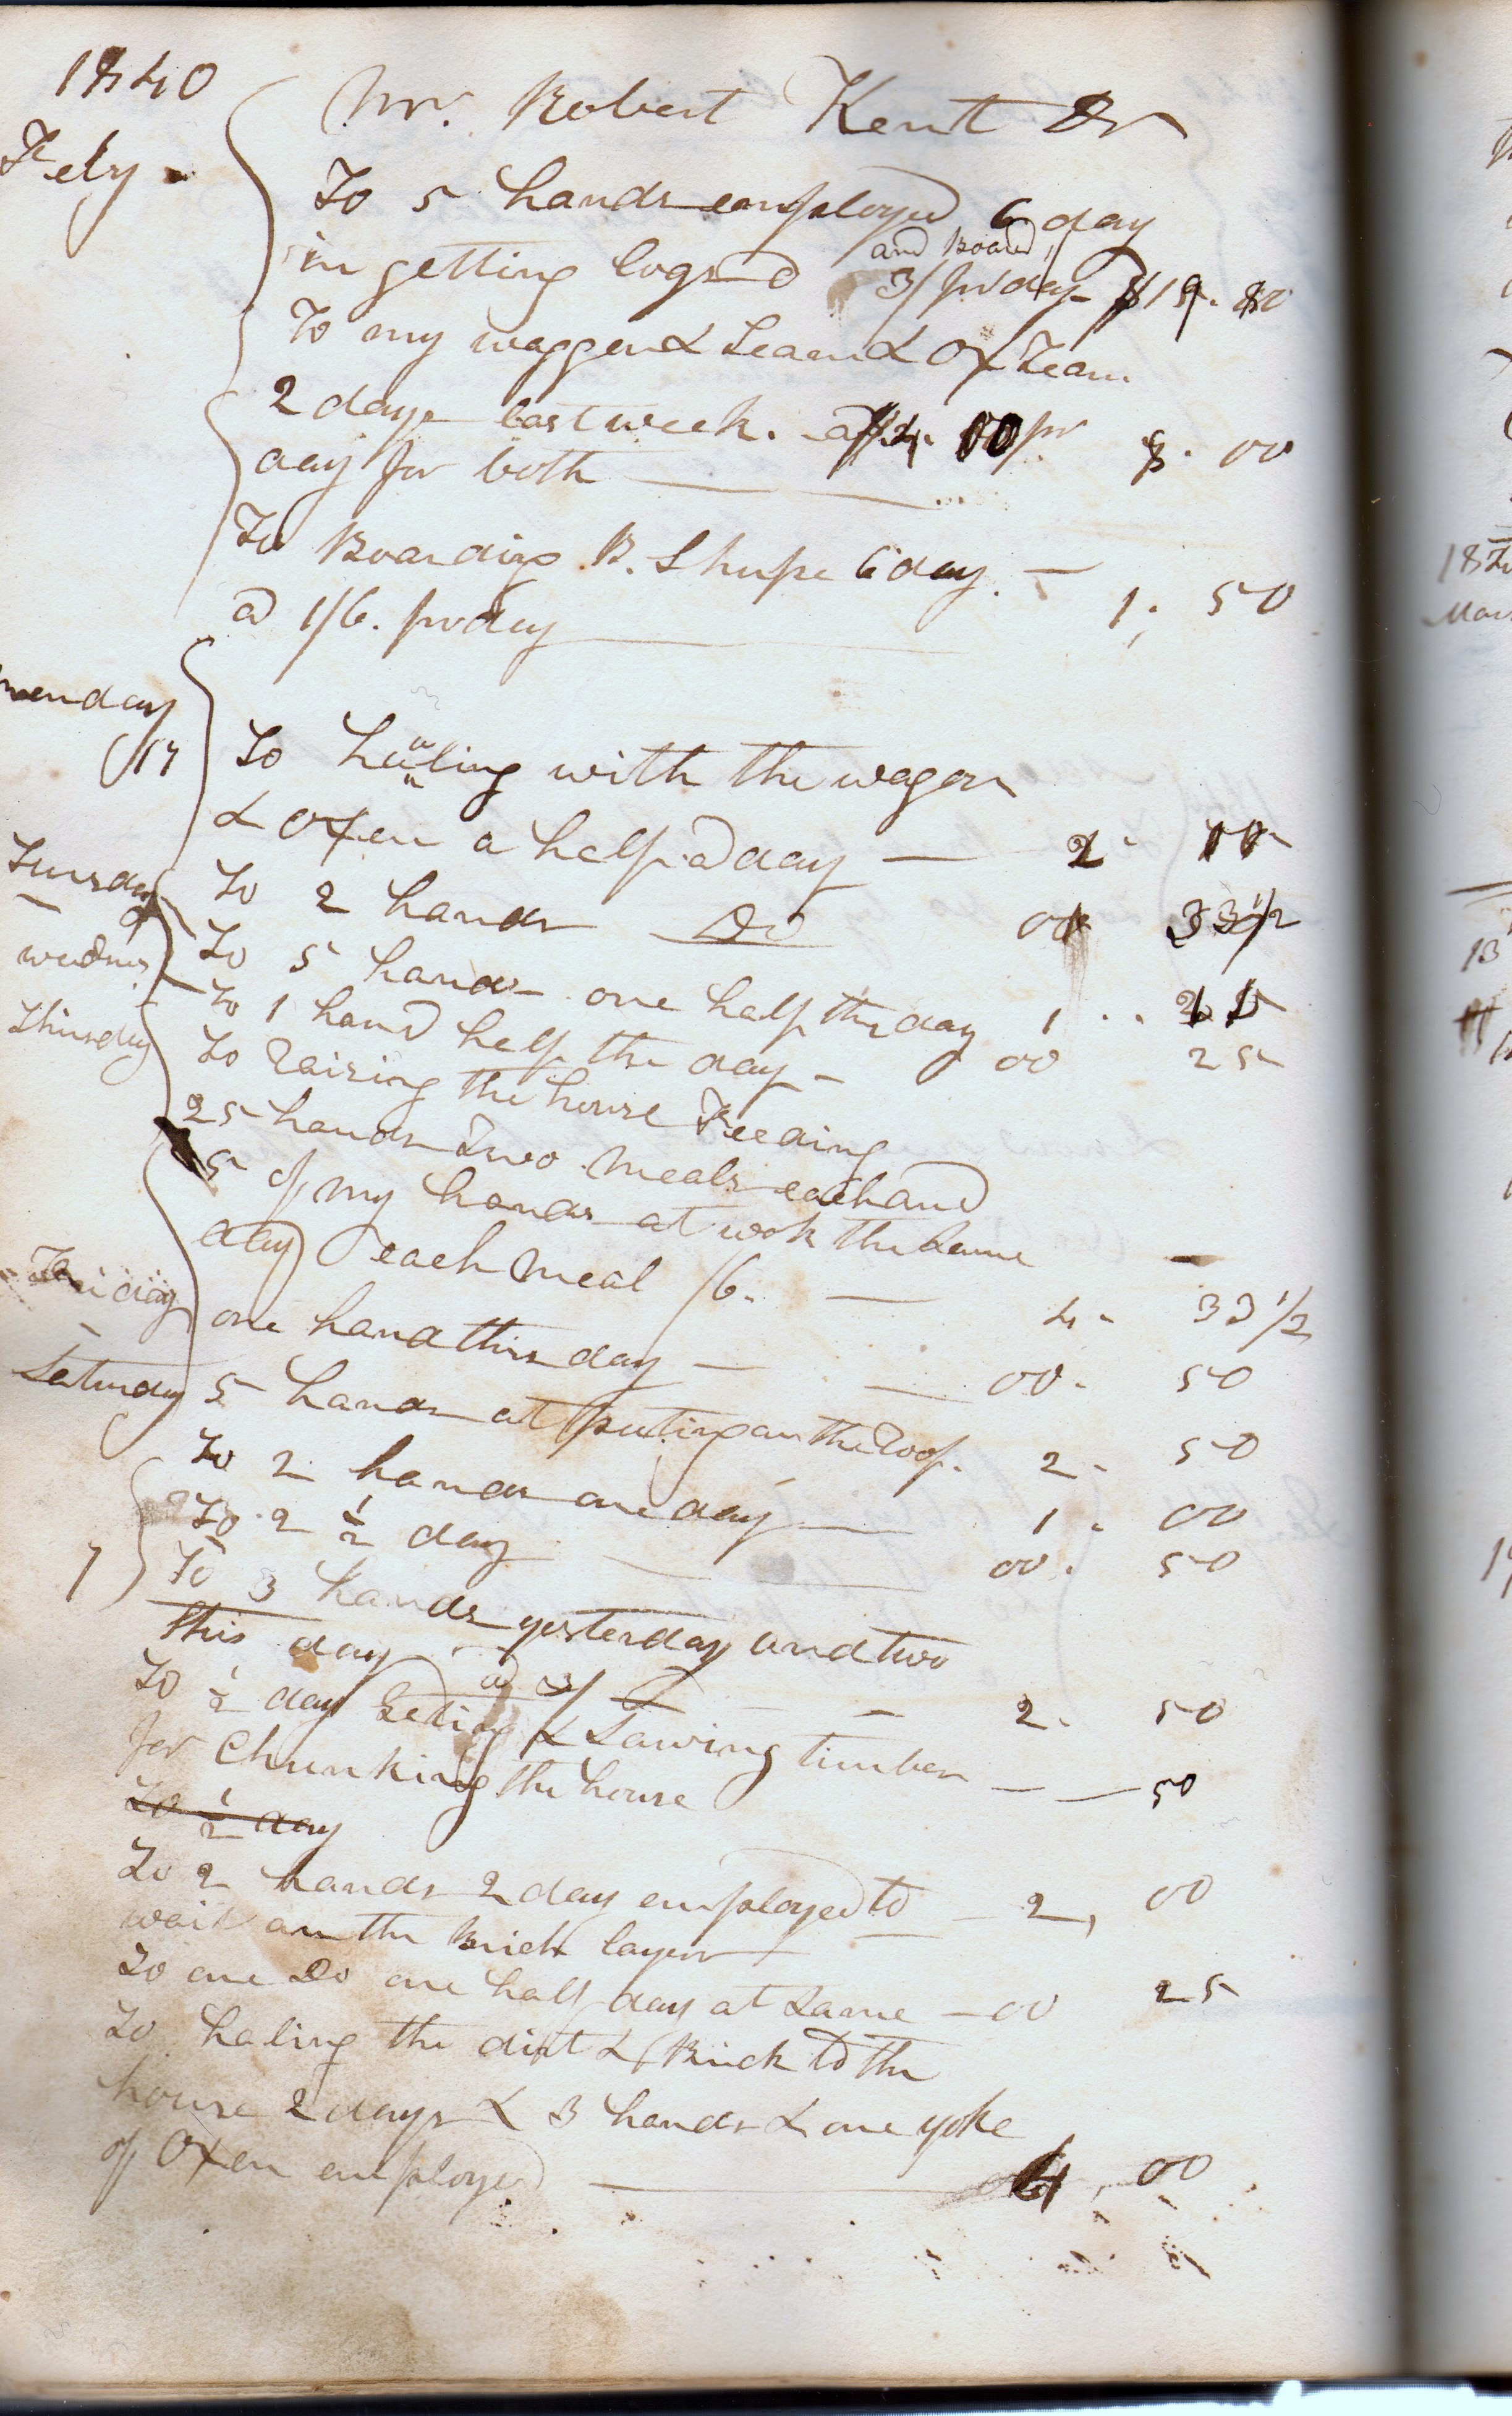 1840
Feby
Mr. Robert Kent Dr
To 5 hands employed 6 day
in getting logs @ and Board 3/ pr day $15.
To my waggen & Team & Ox Team
2 days last week. a $4. 00 pr
day for both 8. 00
To Boarding B. Shupe 6 day. 1. 50
@ 1/6. pr day
monday
17
To hauling with the wagon
& Oxen a half a day 2
Tuesday To 2 hands Do 00 33 1/2
wednes To 5 hands one half the day 1
To 1 hand half the day 00 25
Thursday To Raising the house Feeding
25 hands Two meals each and
5 of my hands at work the same
day each meal /6. 4. 33 1/2
Friday one hand this day 00. 50
Saturday 5 hands at puting on the Roof. 2. 50
To 2 hands one day 1. 00
To 2 1/2 day 00. 50
To 3 hands yesterday and two
this day @ 3/ 2. 50
To 1/2 day Geting & Sawing timber
for Chunking the house 50
To 1/2 day
To 2 hands 2 day employed to 2, 00
wait on the Brick layers
To one Do one half day at same 00 25
To haling the dirt & Brick to the
house 2 days & 3 hands & one yoke
of Oxen employed 4, 00